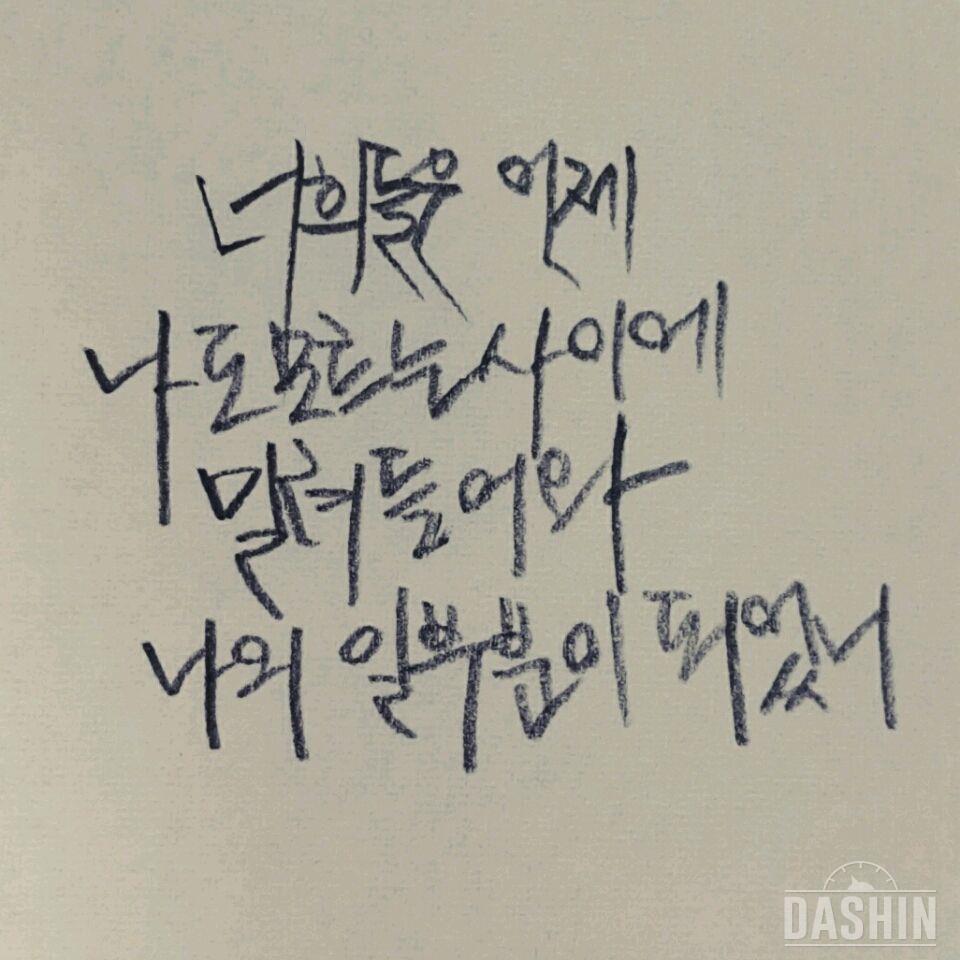 너희들은 언제
나도 모르는 사이에
밀려들어와
나의 일부분이 되었니
DASHIN